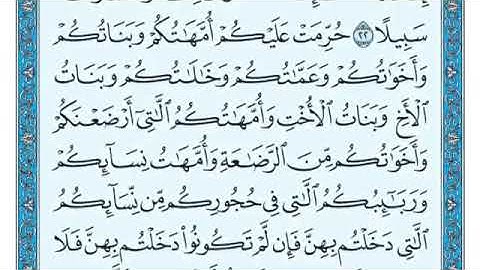 سَبِيلًا ٢٢ حُرِّمَتْ عَلَيْكُمْ أُمَّهَٰتُكُمْ وَبَنَاتُكُمْ
وَأَخَوَٰتُكُمْ وَعَمَّٰتُكُمْ وَخَٰلَٰتُكُمْ وَبَنَاتُ
ٱلْأَخِ وَبَنَاتُ ٱلْأُخْتِ وَأُمَّهَٰتُكُمُ ٱلَّٰتِىٓ أَرْضَعْنَكُمْ
وَأَخَوَٰتُكُم مِّنَ ٱلرَّضَٰعَةِ وَأُمَّهَٰتُ نِسَآئِكُمْ
وَرَبَٰٓئِبُكُمُ ٱلَّٰتِى فِى حُجُورِكُم مِّن نِّسَآئِكُمُ
ٱلَّٰتِى دَخَلْتُم بِهِنَّ فَإِن لَّمْ تَكُونُوا۟ دَخَلْتُم بِهِنَّ فَلَا